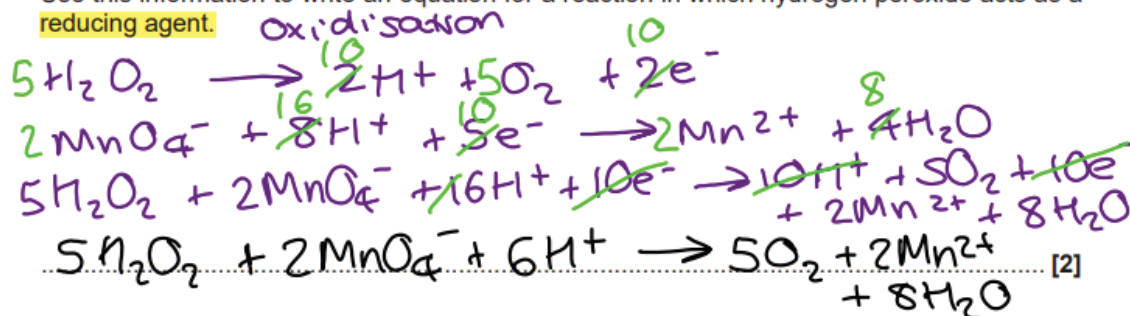 reducing agent. oxidisation
5H₂O₂ → 2̸ 10 H+ + 5O₂ + 2̸ 10 e⁻
2MnO₄⁻ + 8̸ 16 H+ + 5̸ 10 e⁻ → 2Mn²⁺ + 4̸ 8 H₂O
5H₂O₂ + 2MnO₄⁻ + 16H+ + 10e⁻ → 10H+ + 5O₂ + 10e
+ 2Mn²⁺ + 8H₂O
5H₂O₂ + 2MnO₄⁻ + 6H+ → 5O₂ + 2Mn²⁺ [2]
+ 8H₂O